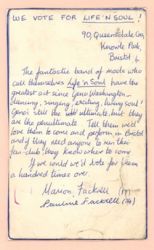 WE VOTE FOR LIFE 'N SOUL!
90, Queensdale Cres,
Knowle Park,
Bristol 4
The fantastic band of mods who
call themselves Life 'n Soul have the
greatest act since Geno Washington -
dancing, singing, exciting, living soul!
Geno's still the ultimate, but they
are the penultimate. Tell them we'd
love them to come and perform in Bristol
and if they need anyone to run their
fan-club they know where to come.
If we could we'd vote for them
a hundred times over.
Marion Farrell
Pauline Farrell